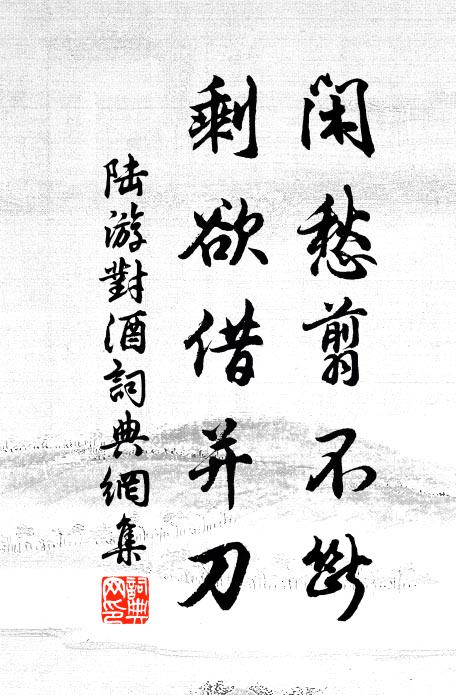 閑愁翦不斷
剩欲借并刀
陆游對酒詞典網集
詞典网印